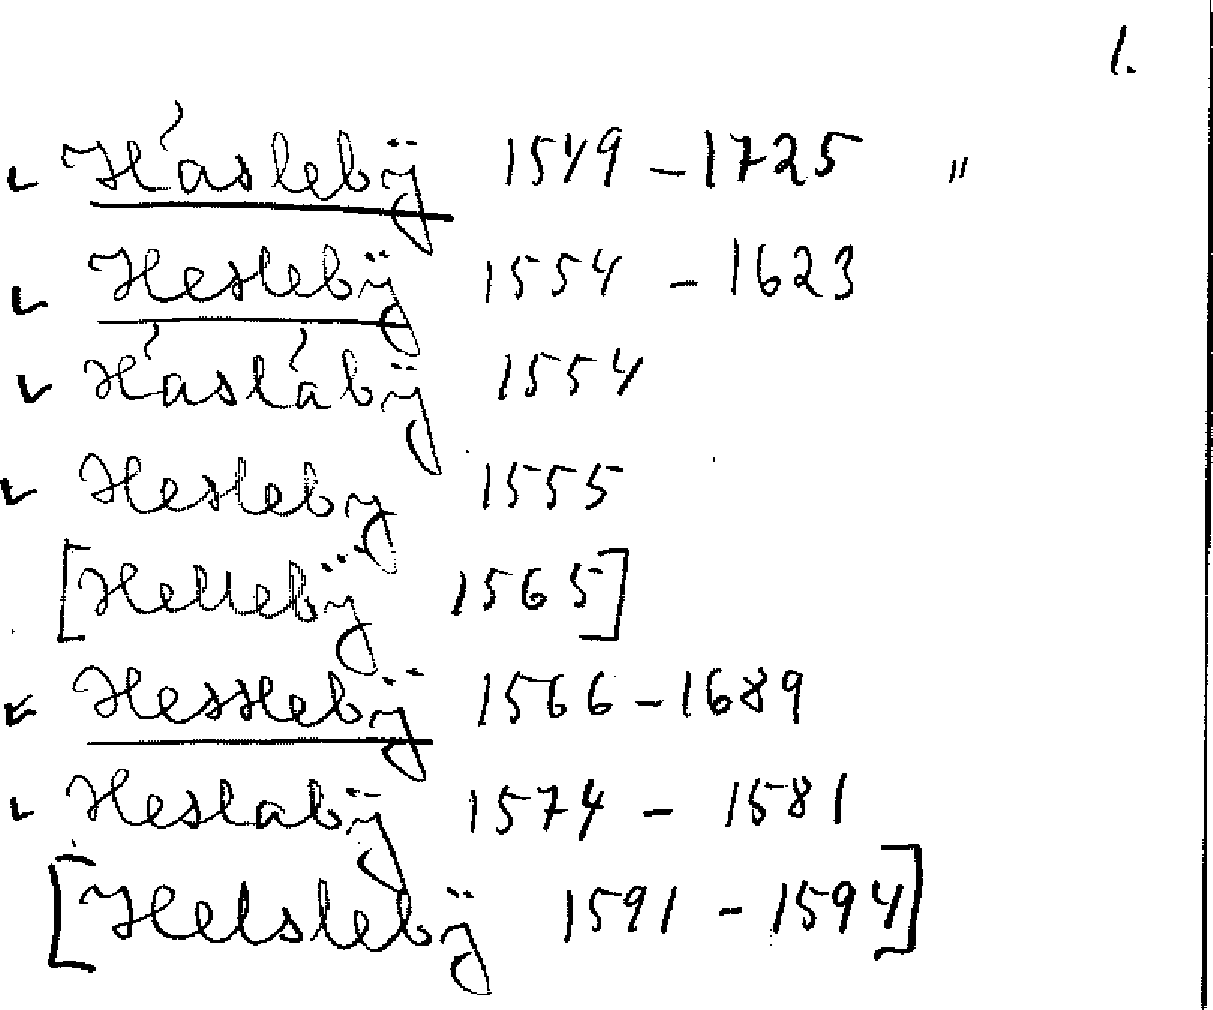 1.
Háslebÿ 1549-1725 "
Heslebÿ 1554 - 1623
Háslábÿ 1554
Hesleby 1555
[Hellebÿ 1565]
Hesslebÿ 1566-1689
Heslabÿ 1574 - 1581
[Helslebÿ 1591 - 1594]